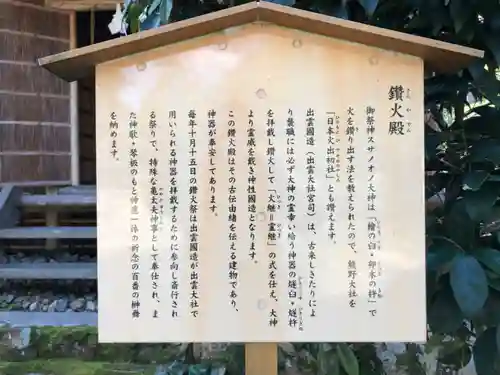 鑽火殿
さんかでん
御祭神スサノオノ大神は「檜の臼・卯木の杵」で
火を鑽り出す法を教えられたので、熊野大社を
「日本火出初社」とも讃えます。
出雲國造（出雲大社宮司）は、古来しきたりによ
り襲職には必ず大神の霊幸い給う神器の燧臼・燧杵
を拝戴し鑽火して「火継＝霊継」の式を仕え、大神
より霊威を戴き神性國造となります。
この鑽火殿はその古伝由緒を伝える建物であり、
神器が奉安してあります。
毎年十月十五日の鑽火祭は出雲國造が出雲大社で
用いられる神器を拝戴するために参向し斎行され
る祭りで、特殊な亀太夫神事として奉仕され、ま
た神歌・琴板のもと神凛一体の祈念の百番の榊舞
を納めます。